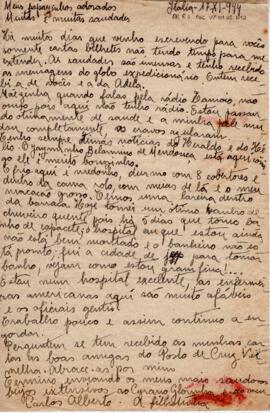 Meus papaisinhos adorados
Muitas e muitas saudades
Italia - 17-XI-944
Há muitos dias que venho escrevendo para vocês
somente cartas bilhetes não tendo tempo para me
extender. As saudades são imensas e tenho recebido
as mensagens do globo expedicionário. Ontem rece-
bi a de vocês e a da Adelia.
Mãezinha, quando falas pela rádio
ouço porque aqui não tenho rádio. Estou passan-
do otimamente de saude e a minha pele mu-
dou completamente, os cravos acabaram.
Tenho sempre dimas noticias do Heraldo e do Hé-
lio. O Joaquim de Mendonça está aqui comi-
go ele é muito bonzinho.
O frio aqui é medonho, durmo com 8 cobertores e
dentro da cama rolo, com meias de lã e o meu
macacão grosso. Temos uma lareira dentro
da barraca. Hoje tomei um otimo banho de
chuveiro quente, pois há 5 dias que tomo ba-
nho de capacete, o hospital em que estou ainda
não está bem montado e o banheiro não es-
tá pronto, fui a cidade de para tomar
banho, vejam como estou granfina!...
Estou num hospital excelente, as enfermei-
ras americanas aqui são muito afaveis
e os oficiais gentis.
Trabalho pouco e assim continuo a en-
gordar.
Perguntem se tem recebido as minhas car-
tas às boas amigas do Posto de Cruz Ver-
melha. Abrace-as por mim
Termino enviando os meus mais saudosos
beijos extensivos ao Cyrano
Carlos Alberto. A filhinha